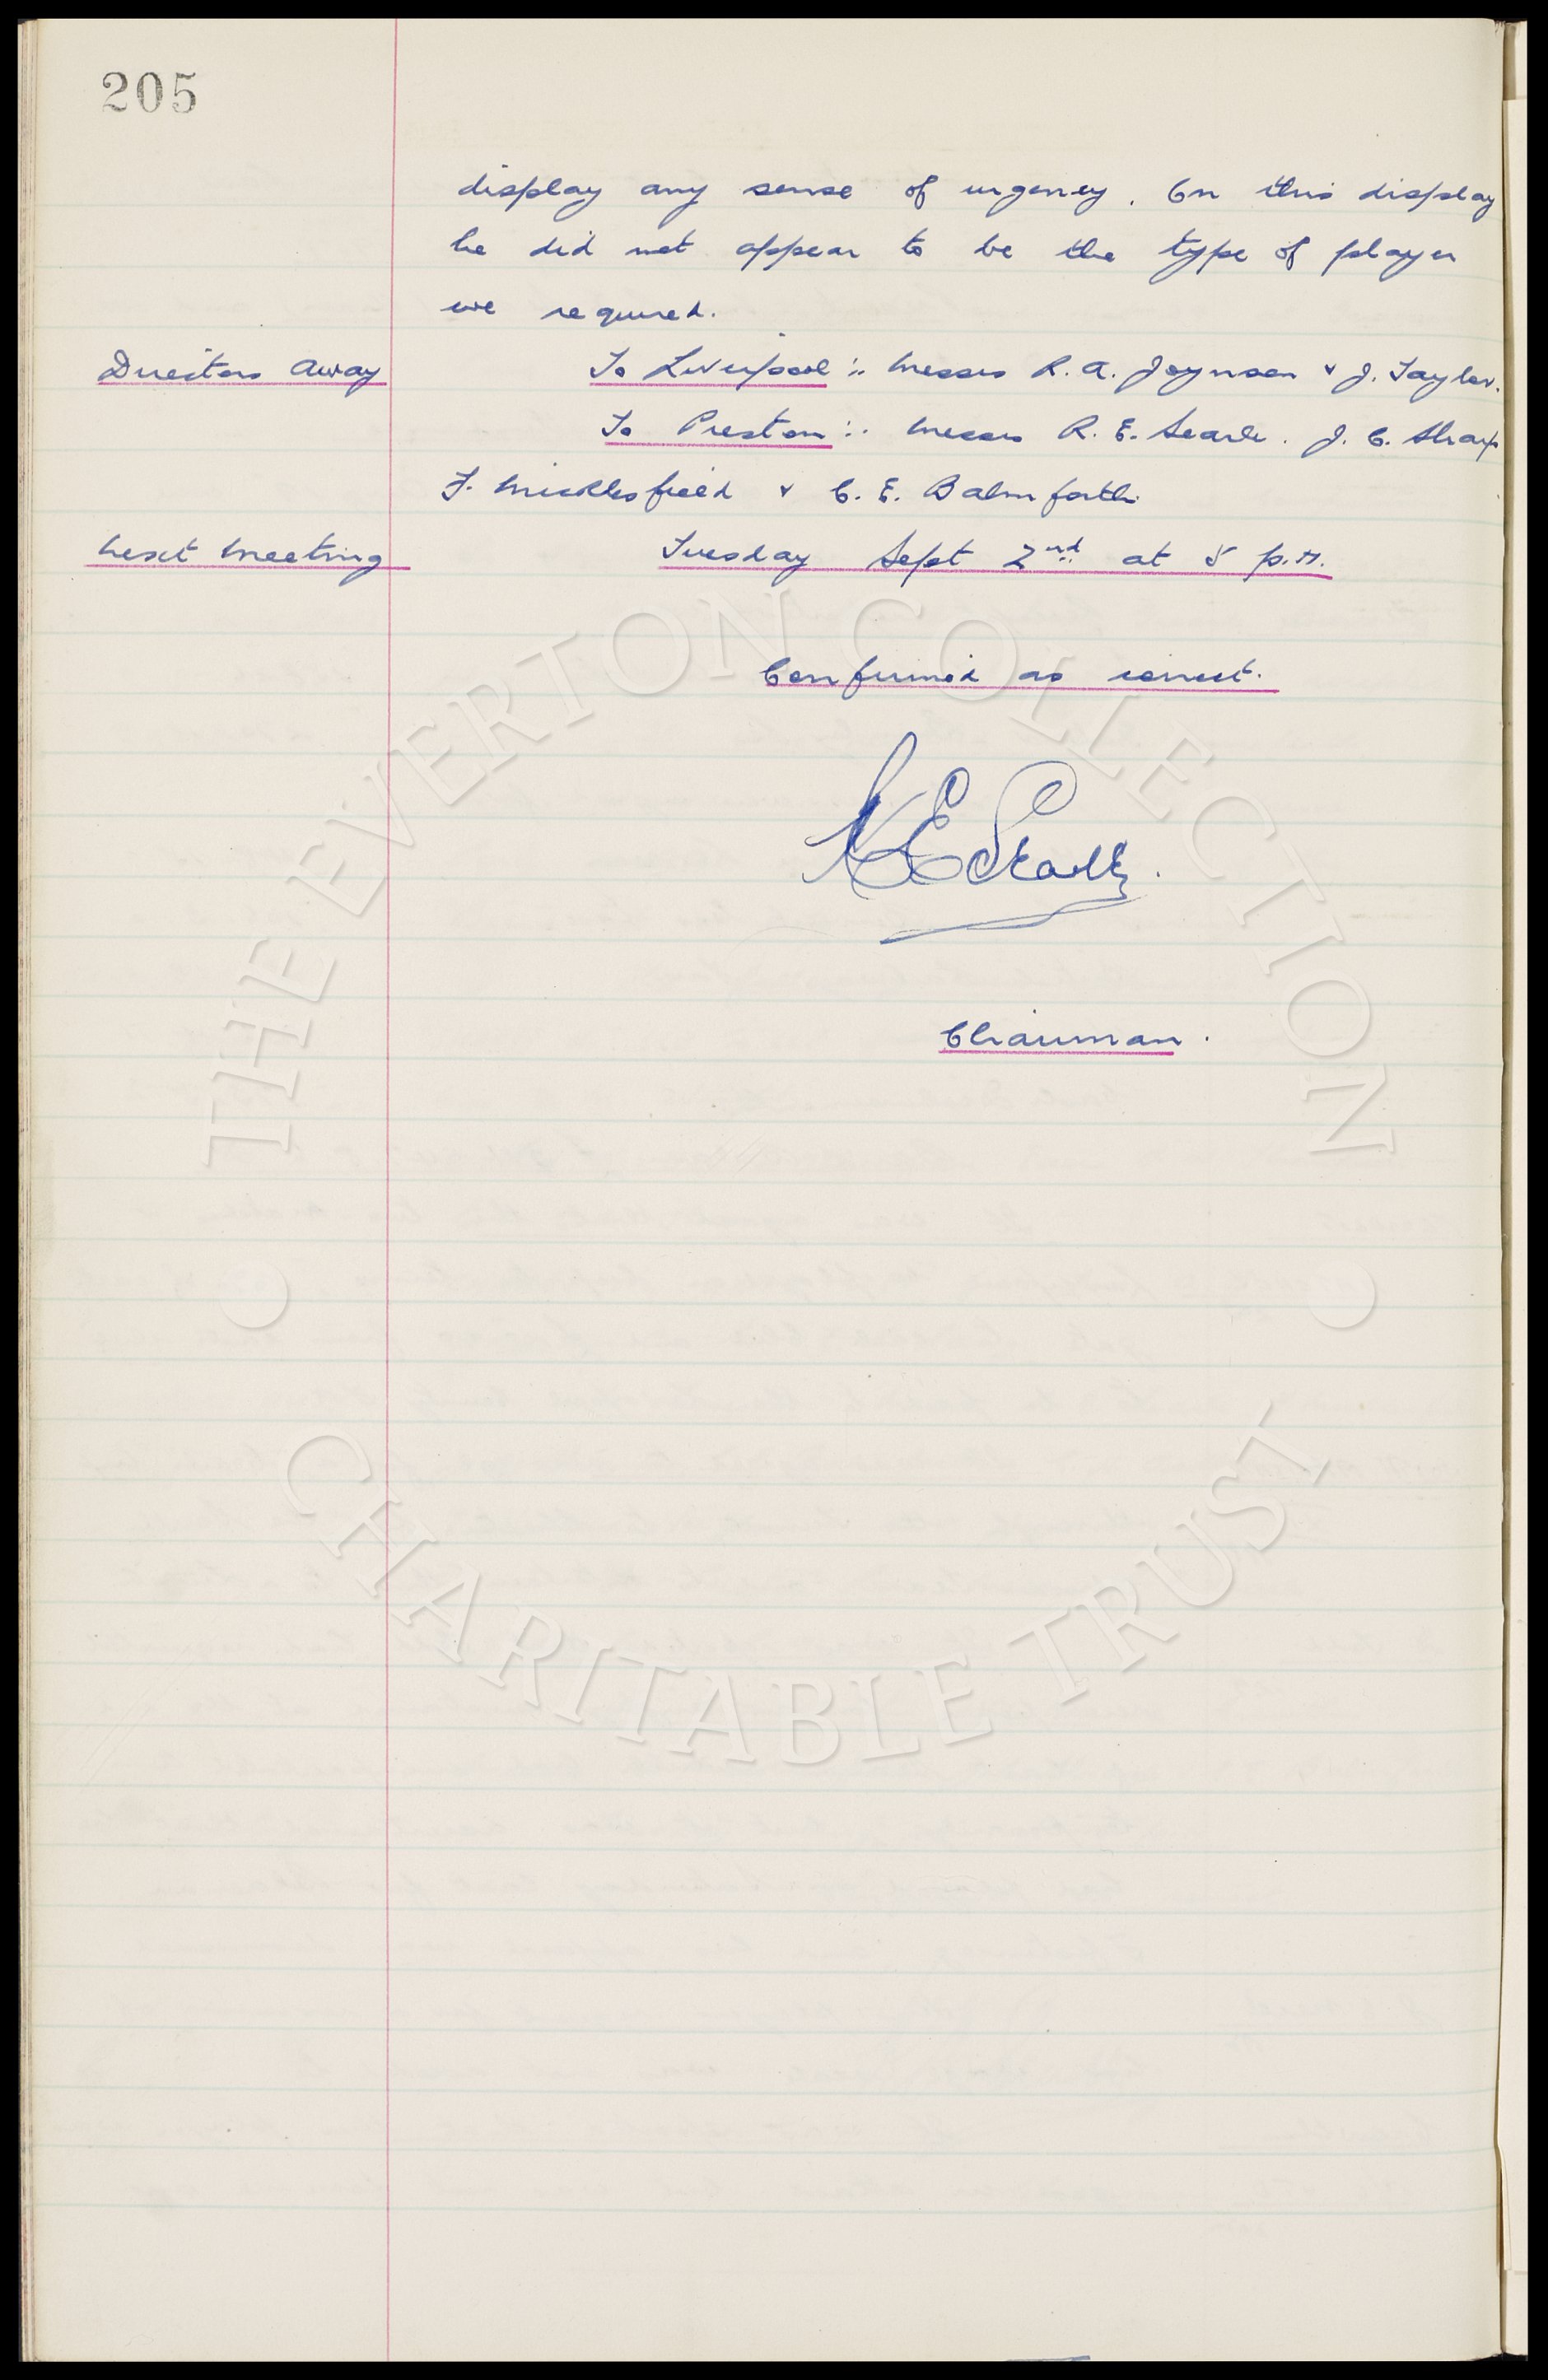 205
display any sense of urgency. On this display
he did not appear to be the type of player
we required.
Directors Away To Liverpool :. Messrs R. A. Joynson & J. Taylor.
To Preston :. Messrs R. E. Searle. J. C. Sharp
F. Micklesfield & C. E. Balmforth.
Next Meeting Tuesday Sept 2nd at 5 p.m.
Confirmed as correct.
R E Searle.
Chairman.
THE EVERTON COLLECTION
CHARITABLE TRUST